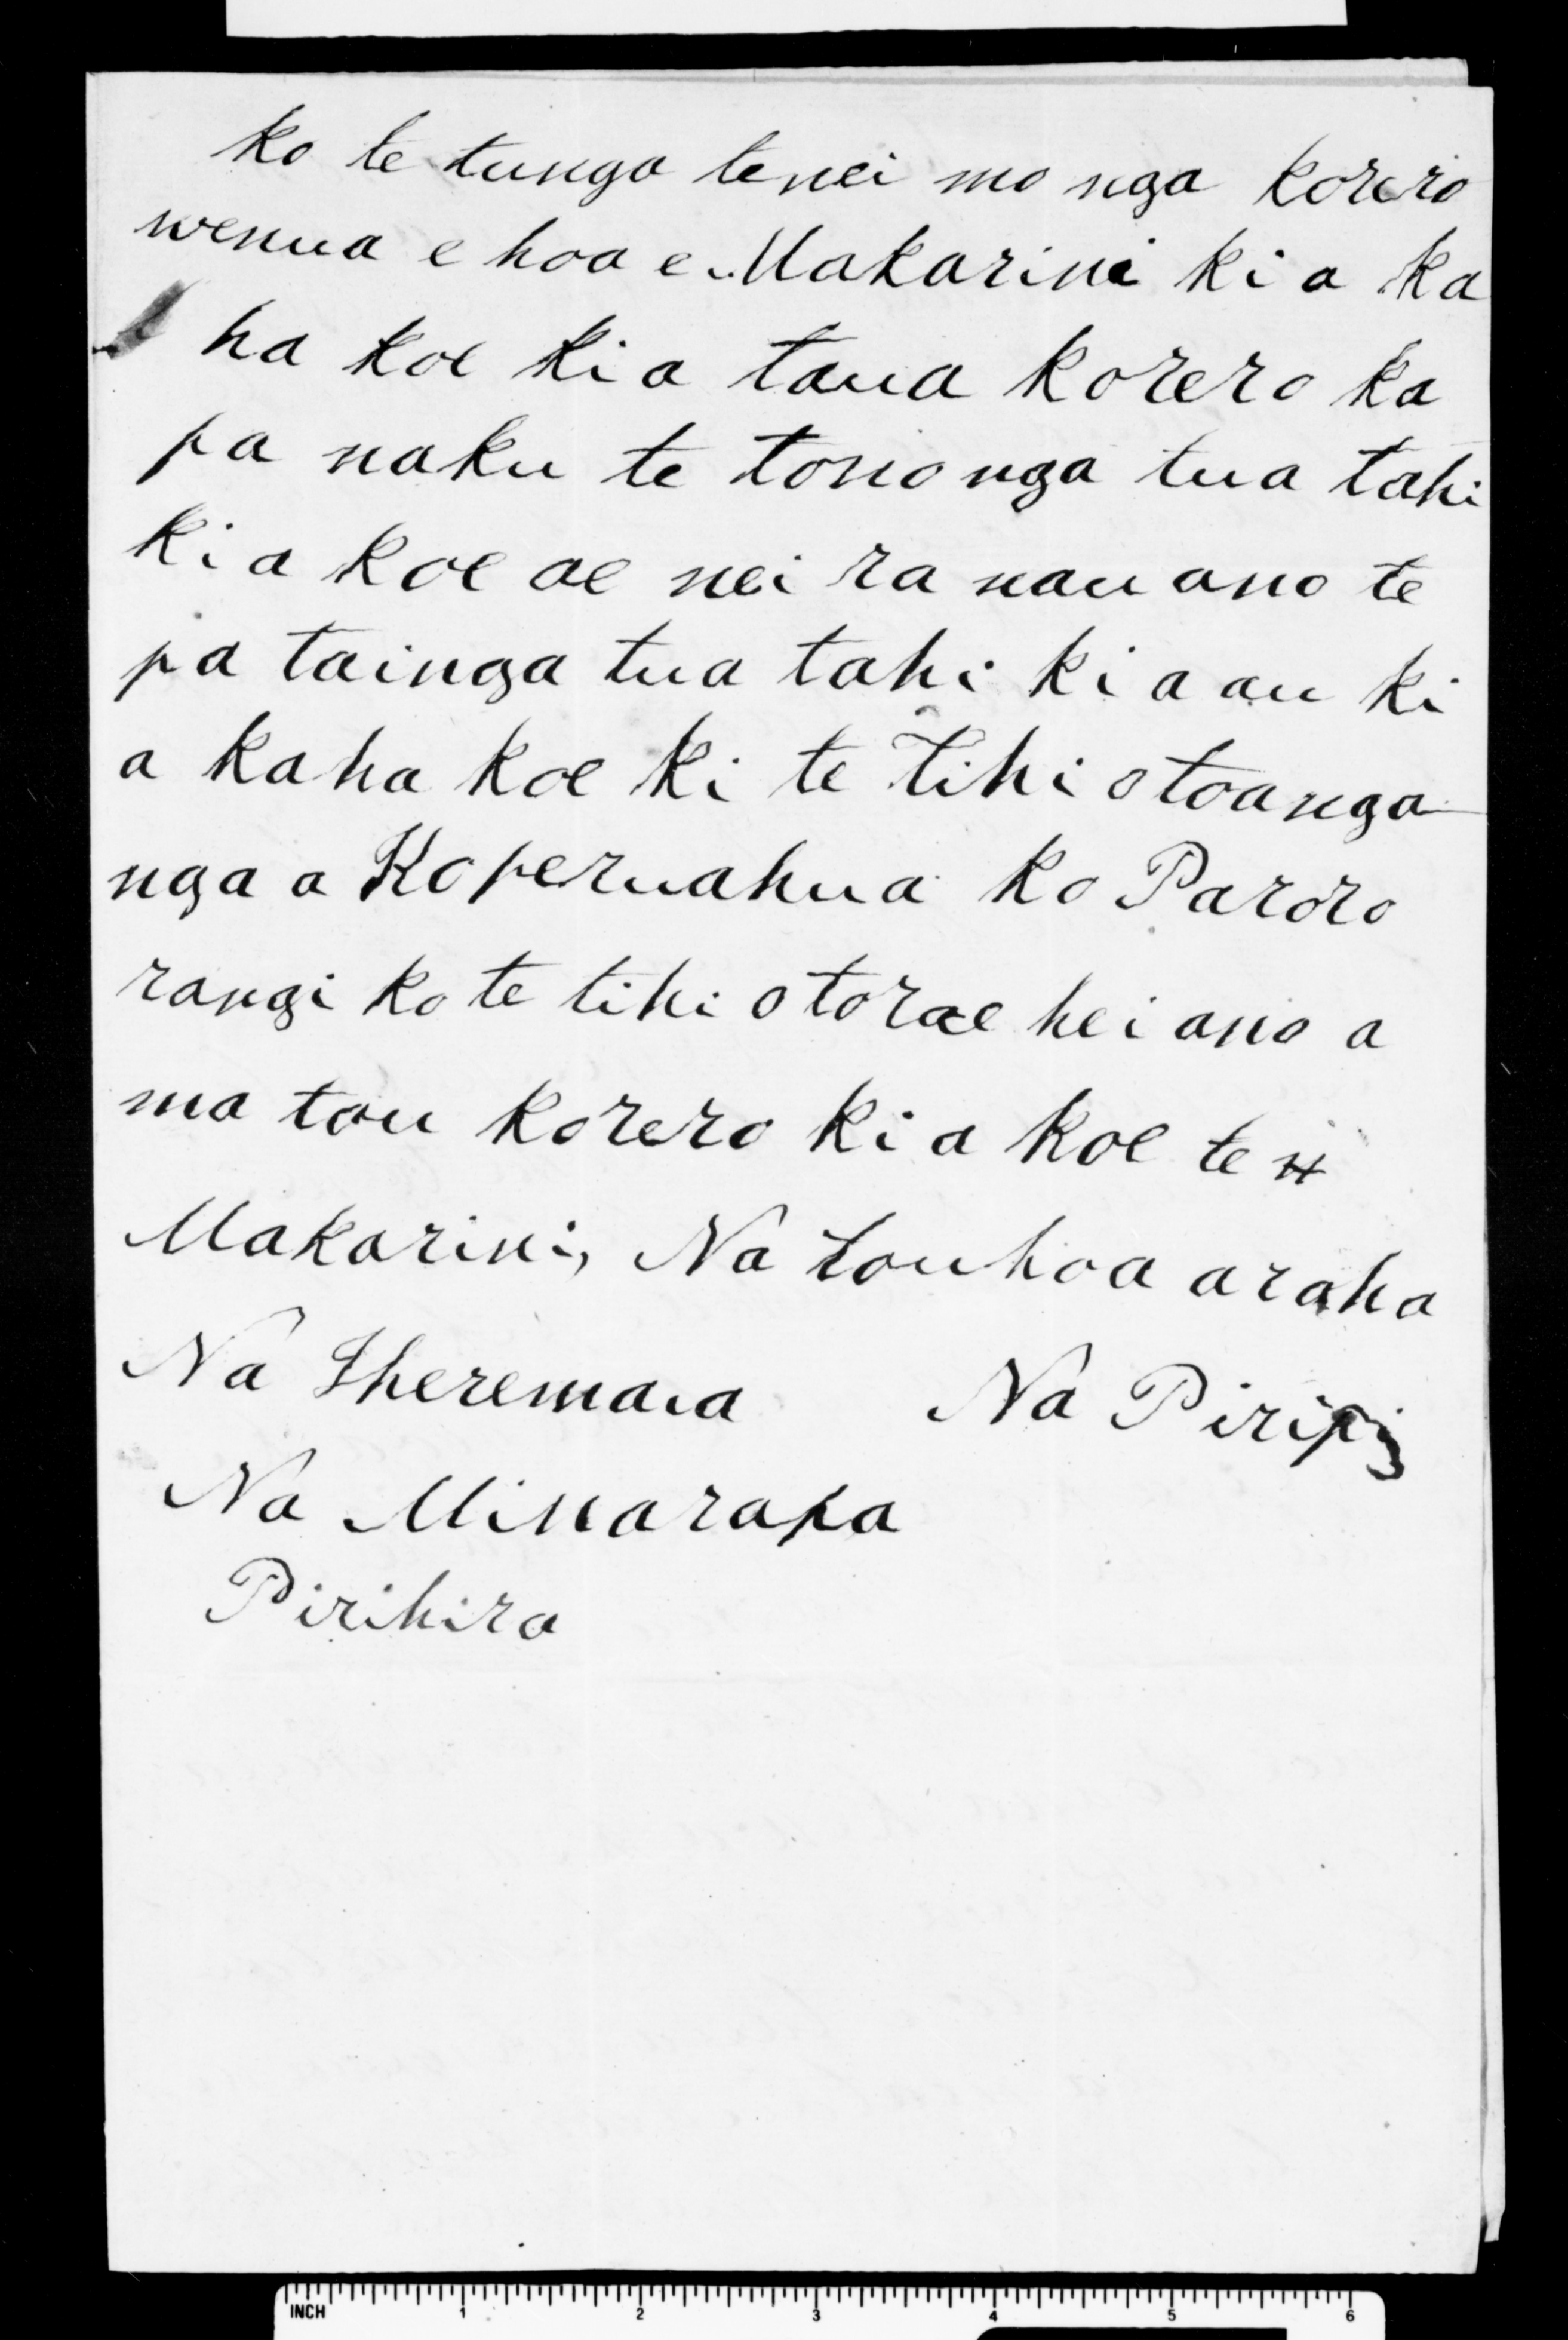 ko te tunga tenei mo nga korero
wenua e hoa e Makarini ki a ka
ha koe ki a taua korero ka
pa naku te tononga tua tahi
ki a koe ae nei ra nau ano te
pa tainga tua tahi ki a au ki
a kaha koe ki te tihi o toanga
nga a Koperuahua ko Paroro
rangi ko te tihi o torae hei ano a
ma tou korero ki a koe te
Makarini, Na tou hoa araha
Na Iheremaia Na Piripi
Na Minarapa
Pirihira
INCH 1 2 3 4 5 6